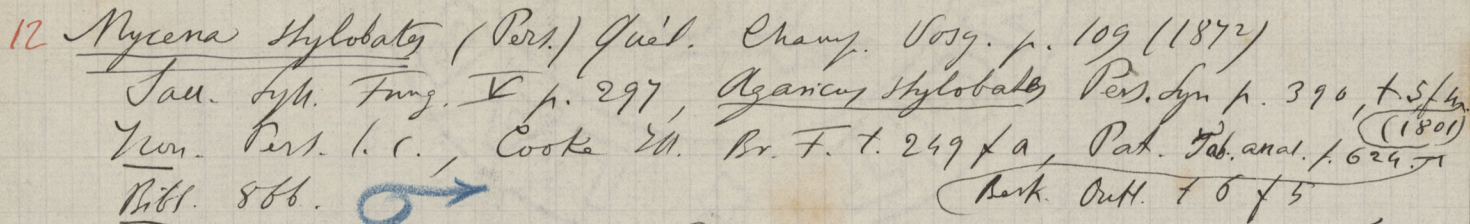 12 Mycena stylobates (Pers.) Quél. Champ. Vosg. p. 109 (1872)
Sacc. Syll. Fung. V p. 297, Agaricus stylobates Pers. Syn p. 390, t. 5 f. 4.
(1801)
Icon. Pers. l. c., Cooke Ill. Br. F. t. 249 f a, Pat. Tab. anal. f. 624.
Bibl. 866. Berk. Outl. t 6 f 5